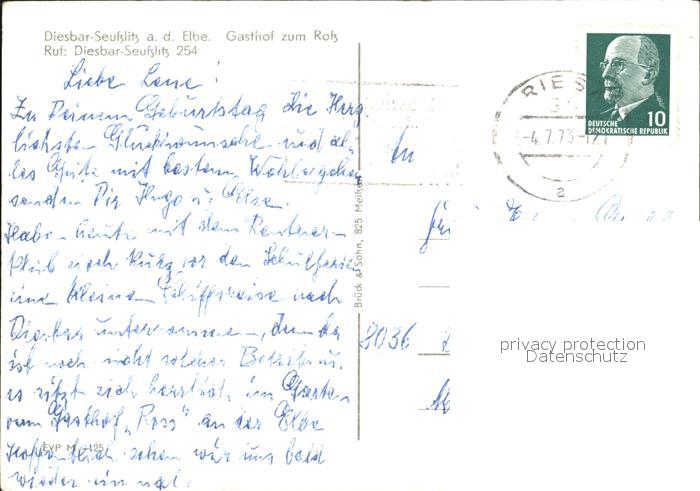 Diesbar-Seußlitz a. d. Elbe. Gasthof zum Roß
Ruf: Diesbar-Seußlitz 254
Liebe Lene!
Zu Deinem Geburtstag die Herz-
lichsten Glückwünsche und al-
les Gute mit bestem Wohlergehen
senden Dir Hugo u. Else.
Habe heute mit dem Rentner-
klub noch kurz vor den Schulferien
eine kleine Schiffsreise nach
Diesbar unternommen, denn da
ist noch nicht solcher Betrieb u.
es sitzt sich herrlich im Garten
vom Gasthof "Ross" an der Elbe
Hoffentlich sehen wir uns bald
wieder ein mal.
EVP M -,25
Brück & Sohn, 825 Meißen
RIES
-4.7.73-17
a
DEUTSCHE
DEMOKRATISCHE REPUBLIK
10
An
8036
privacy protection
Datenschutz